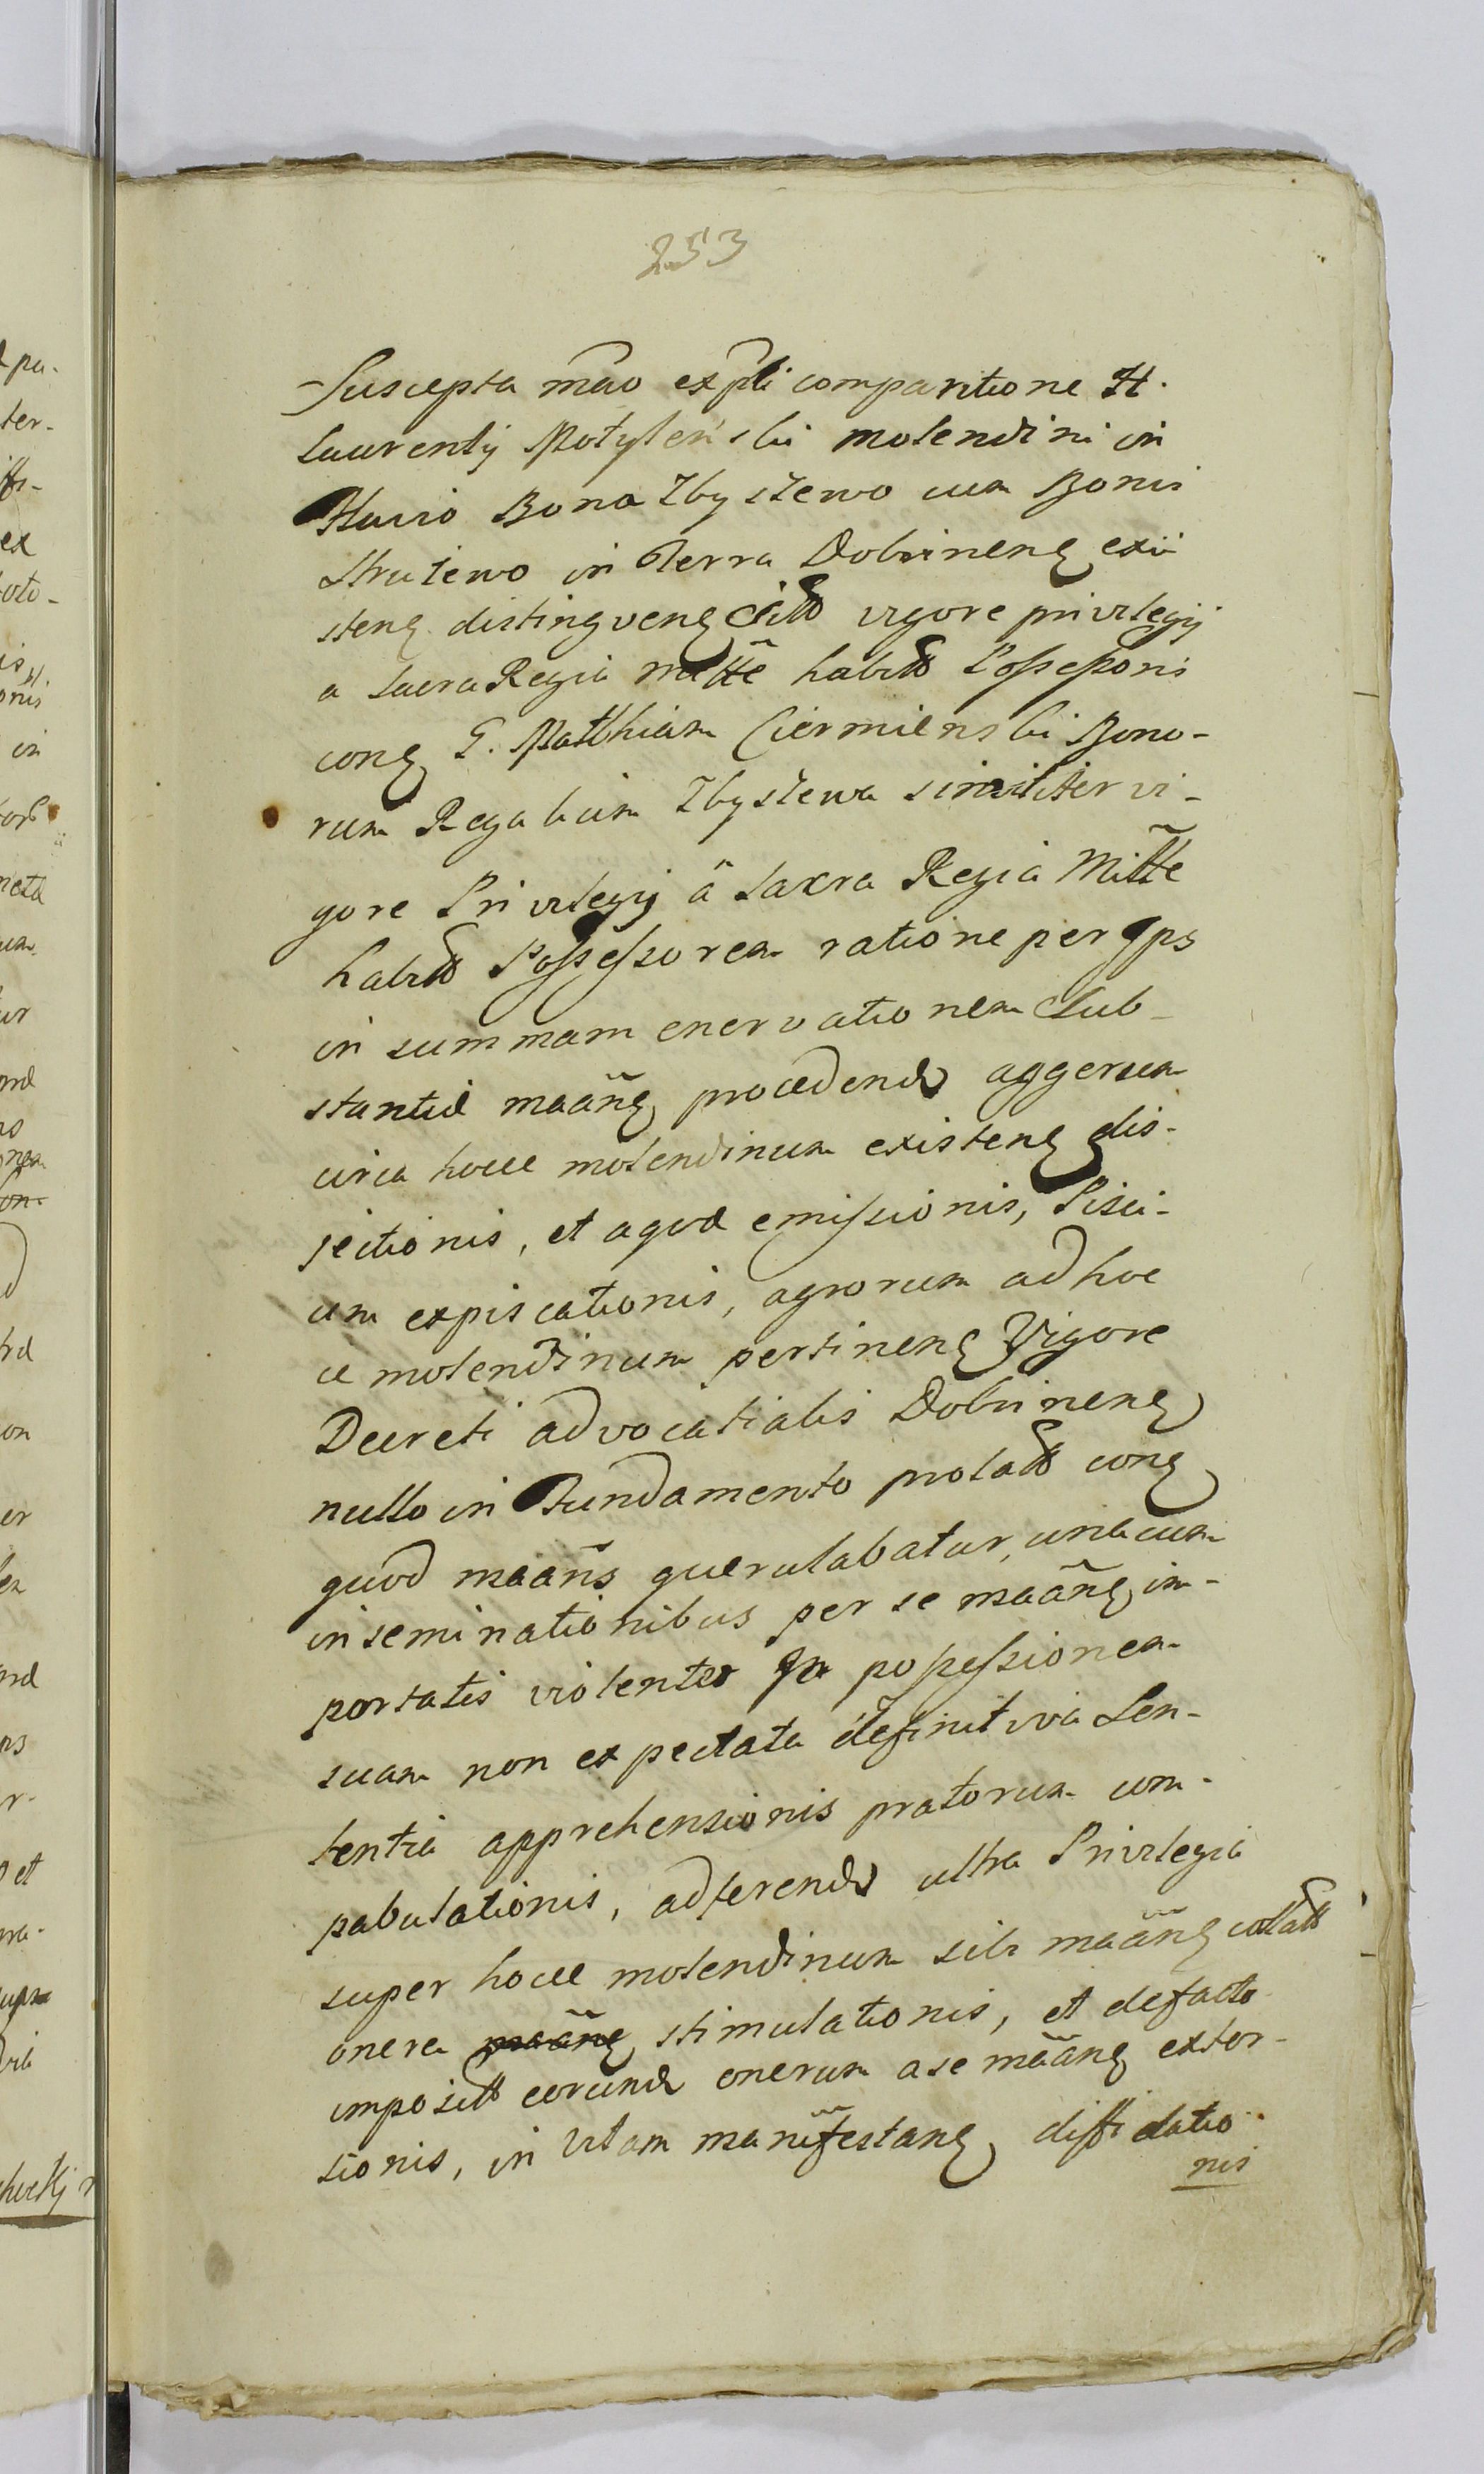 253
Suscepta mãо expli comparitione H.
Laurentij Motylenski molendini in
Fluvio Bona Zbyszewo cum Bonis
Strutewo in Terra Dobrinenς exii
stenς distingvenς sitt vigore privilegij
a Sacra Regia mtte habitt Possessoris
conς G. Matthiam Ciermienski Bono-
rum Regalium Zbyszewa similiter vi-
gore Privilegij â Sacra Regia Mtte
habitt Possessorem ratione per Ips
in summam enervationem Sub-
stantiæ maãnς procedendo aggerum
circa hocce molendinum existenς dis-
jectionis, et aquæ emissionis, Pisci-
um expiscationis, agrorum ad hoc
ce molendinum pertinenς Vigore
Decreti advocatialis Dobrinenς
nullo in Fundamento prolatt conς
quod maãns querulabatur, una cum
inseminationibus per se maãnς im-
portatis violenter in possessionem
suam non expectata definitiva Sen-
tentia apprehensionis pratorum com-
pabulationis, adferendo ultra Privilegia
super hocce molendinum sibi maãnς collatt
onera maãnς stimulationis, et defacto
imposítt eorund onerum a se maãnς extor-
sionis, in vitam manifestanς diffidatio
nis